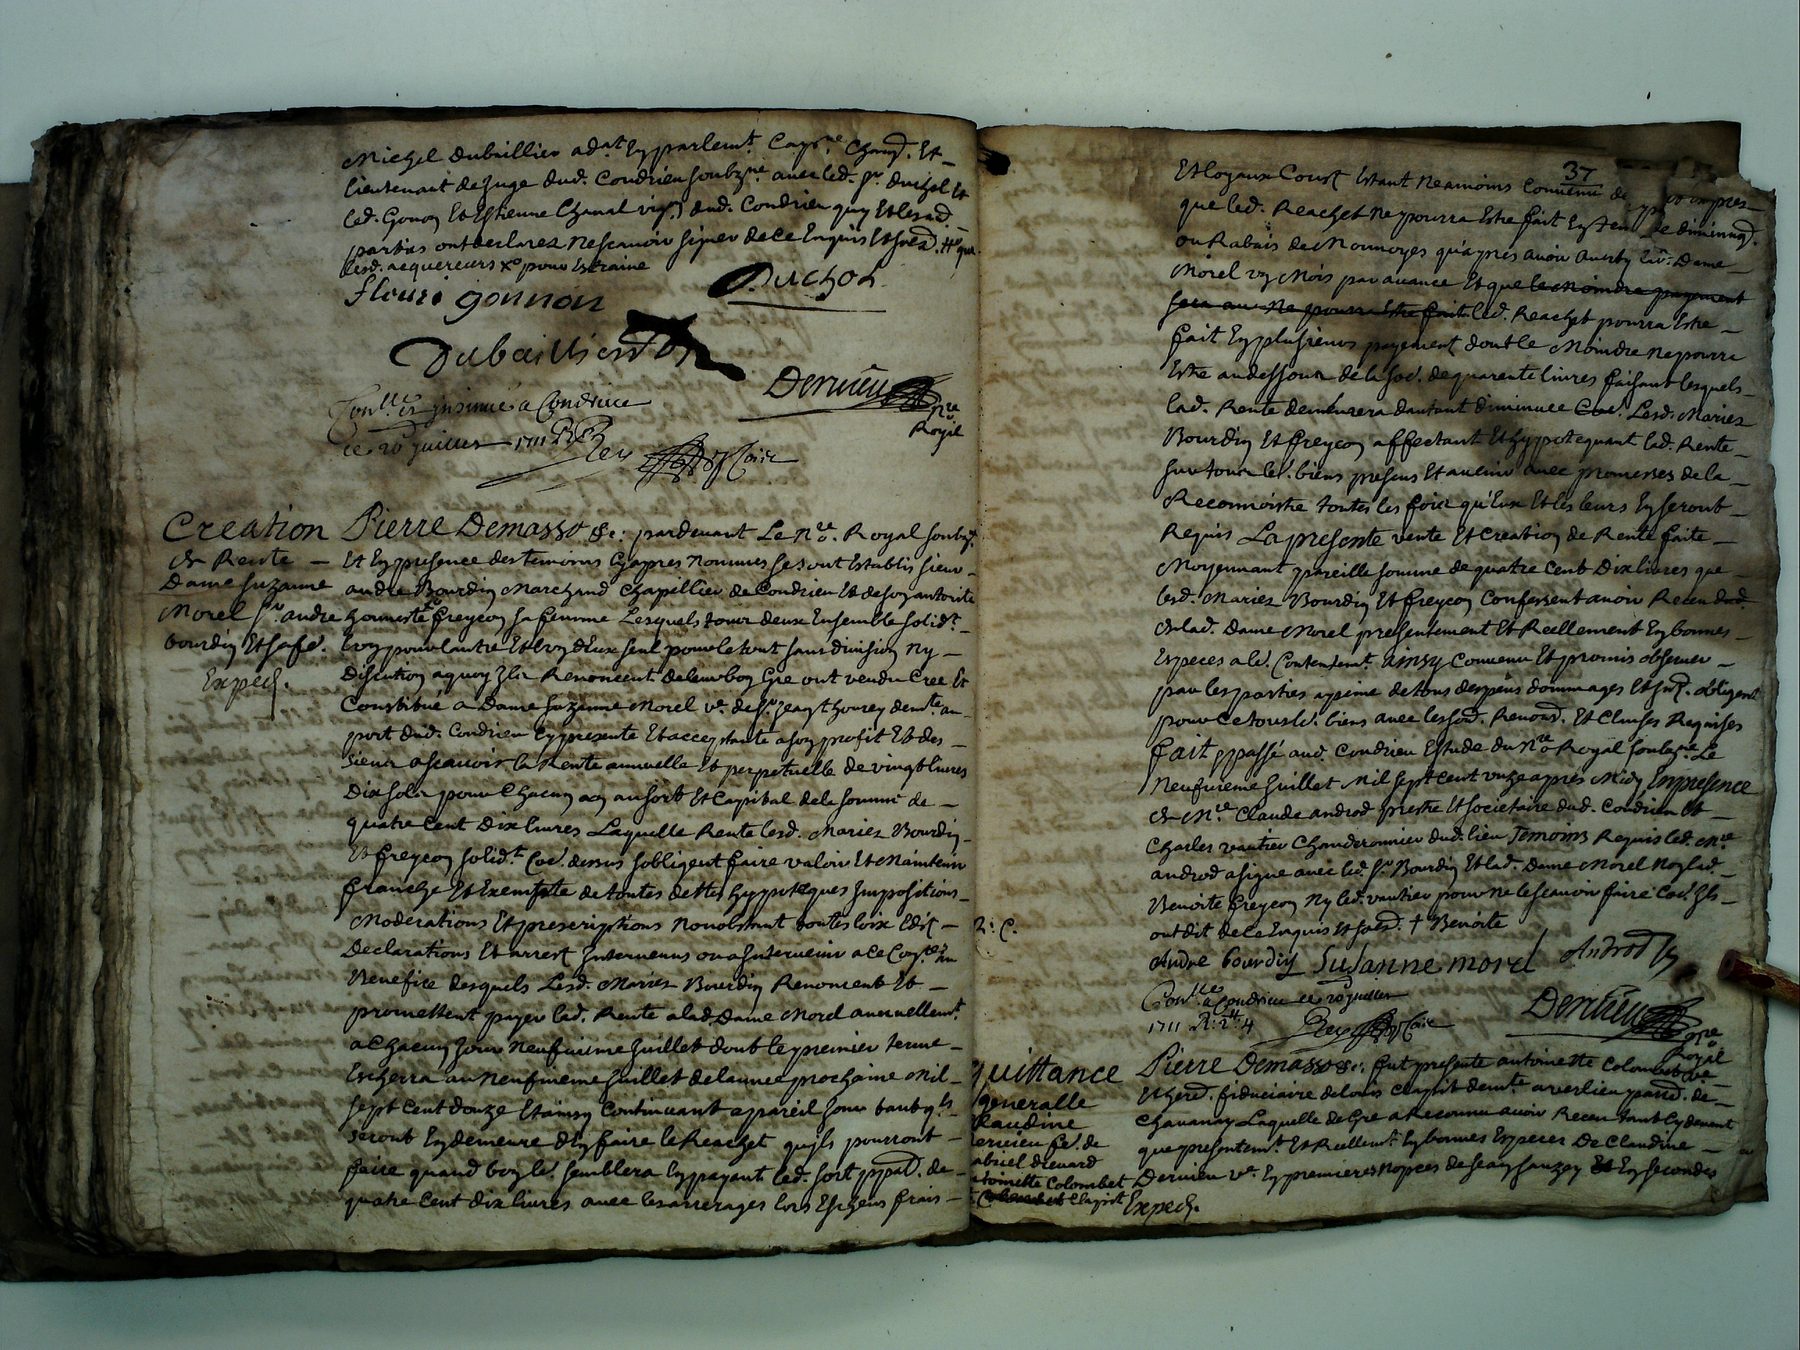 Michel dubaillier adat En parlemt. Cape. Chand. Et
lieutenant de Juge dud. Condrieu soubzne. avec led. sr. duchol et
led. Gonon Et Estienne Chanal dud. Condrieu quy Et lesd.
parties ont declarez ne scavoir signer de ce Enquis Et
lesd. acquereurs xo pour Estraine
fleuri gonnon
Duchol
Dubaillier
Dervieu
nre
Royal
Conlle. et insinué a Condrieu
ce 20 juillet 1711
Rey
Creation
de Rente
Dame Suzanne
Morel sr. andre
bourdin Et sa fe.
Exped.
Pierre Demasso &c: pardevant Le Nre. Royal soubzne.
Et En presence des temoins Cyapres nommes se sont Establis sieur
andre Bourdin Marchand Chapellier de Condrieu Et de son autorite
honneste freycon sa femme Lesquels tour deux Ensemble solidt.
L'un pour lautre Et l'un d'Eux seul pour le tout sans division ny
discution a quoy Ils Renoncent de leur bon Gre ont vendu Cree Et
Constitué a Dame Suzanne Morel ve. de sr. Jean thourey demte. au
port dud. Condrieu Cy presente Et acceptante a son profit Et des
siens ascavoir la Rente annuelle Et perpetuelle de vingt livres
Dix sols pour Chacun an au sort Et Capital de la somme de
quatre Cent Dix livres Laquelle Rente lesd. Mariez Bourdin
Et freycon solidt. Coe. dessus sobligent faire valoir Et Maintenir
franche Et Exempte de toutes dettes hypoteques Impositions
Moderations Et prescriptions Nonobstant toutes loix Edit
Declarations Et arrest Intervenus ou a Intervenir a ce Conte. au
Benefice desquels Lesd. Mariez Bourdin Renoncent Et
promettent payer lad. Rente a lad. Dame Morel annuellemt.
a Chacun Jour Neufvieme Juillet dont le premier terme
Escherra au Neufvieme Juillet de lannee prochaine Mil
sept Cent douze Et ainsy Continuant a pareil Jour tant qls
seront En demeure d'En faire le Reachet quils pourront
faire quand bon le. semblera En payant led. sort ppal. de
quatre Cent Dix livres avec les arrerages lors Escheus frais
37
Et loyaux Coust Estant Neamoins Convenu de
que led. Reachet ne pourra Estre fait En tem de diminuon.
ou Rabais de Monnoyes qu'apres avoir averty lad. Dame
Morel un Mois par avance Et que le Moindre payement
sera au Ne pourra Estre fait led. Reachet pourra Estre
fait En plusieurs payement dont le Moindre ne pourra
Estre au dessous de la soe. de quarente livres faisant lesquels
lad. Rente demeurera dautant diminuee Coe. Lesd. Mariez
Bourdin Et freycon affectant Et hypotequant lad. Rente
sur tour le. biens presens Et avenir avec promesses de la
Reconnoistre toutes les fois qu'Eux Et les leurs En seront
Requis La presente vente Et Creation de Rente faite
Moyennant pareille somme de quatre Cent Dix livres que
lesd. Mariez Bourdin Et freycon Confessent avoir Receu
de lad. Dame Morel presentement Et Reellement En bonnes
Especes a le. Contentemt. Ainsy Convenu Et promis observer
par les parties a peine de tous despens dommages Et int. obligent
pour Ce tous le. biens avec les sod. Renond. Et Clauses Requises
fait Et passé aud. Condrieu Estude du Nre Royal soubzne. Le
Neufvieme Juillet Mil sept Cent unze apres Midy En presence
de Mre. Claude androd prestre Et societaire dud. Condrieu Et
Charles vautier Chauderonnier dud. lieu Temoins Requis led. Mre
androd a signe avec led. sr. Bourdin Et lad. Dame Morel Non lad.
Benoite freycon Ny led. vautier pour ne le scavoir faire Coe. Ils
ont dit de ce Enquis Et + Benoite
Andre bourdin Susanne morel Androd
Conlle. a Condrieu ce 20 juillet
1711
Rey
Dervieu
nre
Royal
quittance
generalle
Claudine
dervieu fe. de
gabriel
antoinette Colombet
Exped.
Pierre Demasso &c: fut presente antoinette Colombet ve.
Et hered. fiduciaire de louis demte. a verlieu de
Chavanay Laquelle de Gre a Reconnu avoir Receu tant Cy devant
que presentemt. Et Reellemt. En bonnes Especes De Claudine
Dervieu ve. En premieres nopces de Jean Sauzey Et En secondes